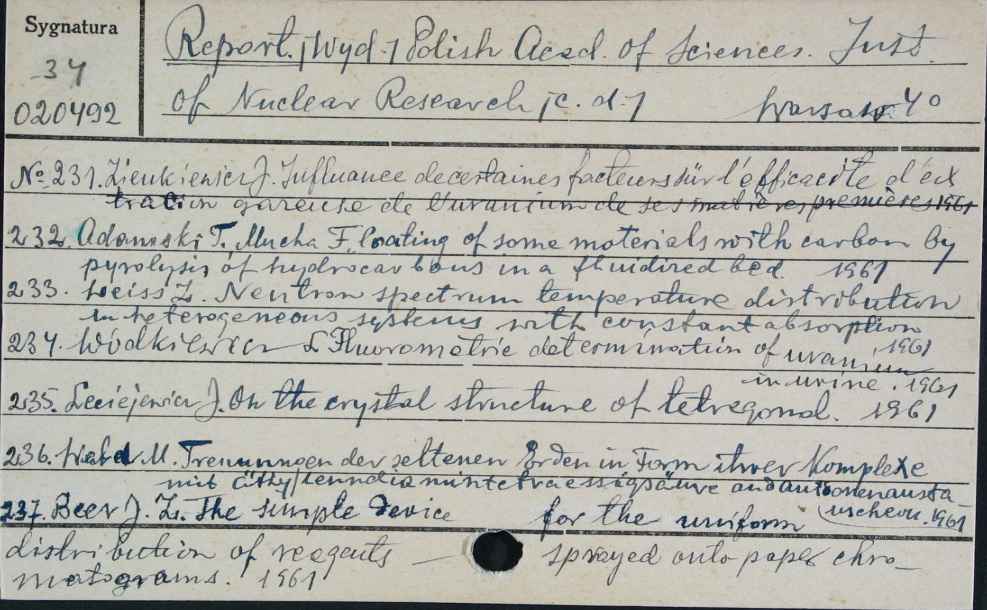 Sygnatura
34
020492
Report. [Wyd.] Polish Acad. of Sciences. Inst.
of Nuclear Research [c. d.] Warsaw 4°
№ 231. Zienkiewicz J. Influance de certaines facteurs sur l'efficacite d'ex
traction gazeuse de l'uranium de ses matières premières 1961
232. Adamski T. Mucha F. Coating of some materials with carbon by
pyrolysis of hydrocarbons in a fluidized bed. 1961
233. Weiss Z. Neutron spectrum temperature distribution
in heterogeneous systems with constant absorption
1961
234. Wódkiewicz L Fluorometric determination of uranium
in urine. 1961
235. Leciejewicz J. On the crystal structure of tetregonal. 1961
236. Wald M. Trennungen der seltenen Erden in Form ihrer Komplexe
mit Äthylendiamintetraessigsäure and Antonenausta
uschern. 1961
237. Beer J. Z. The simple device for the uniform
distribution of reagents — sprayed onto paper chro_
matograms. 1961